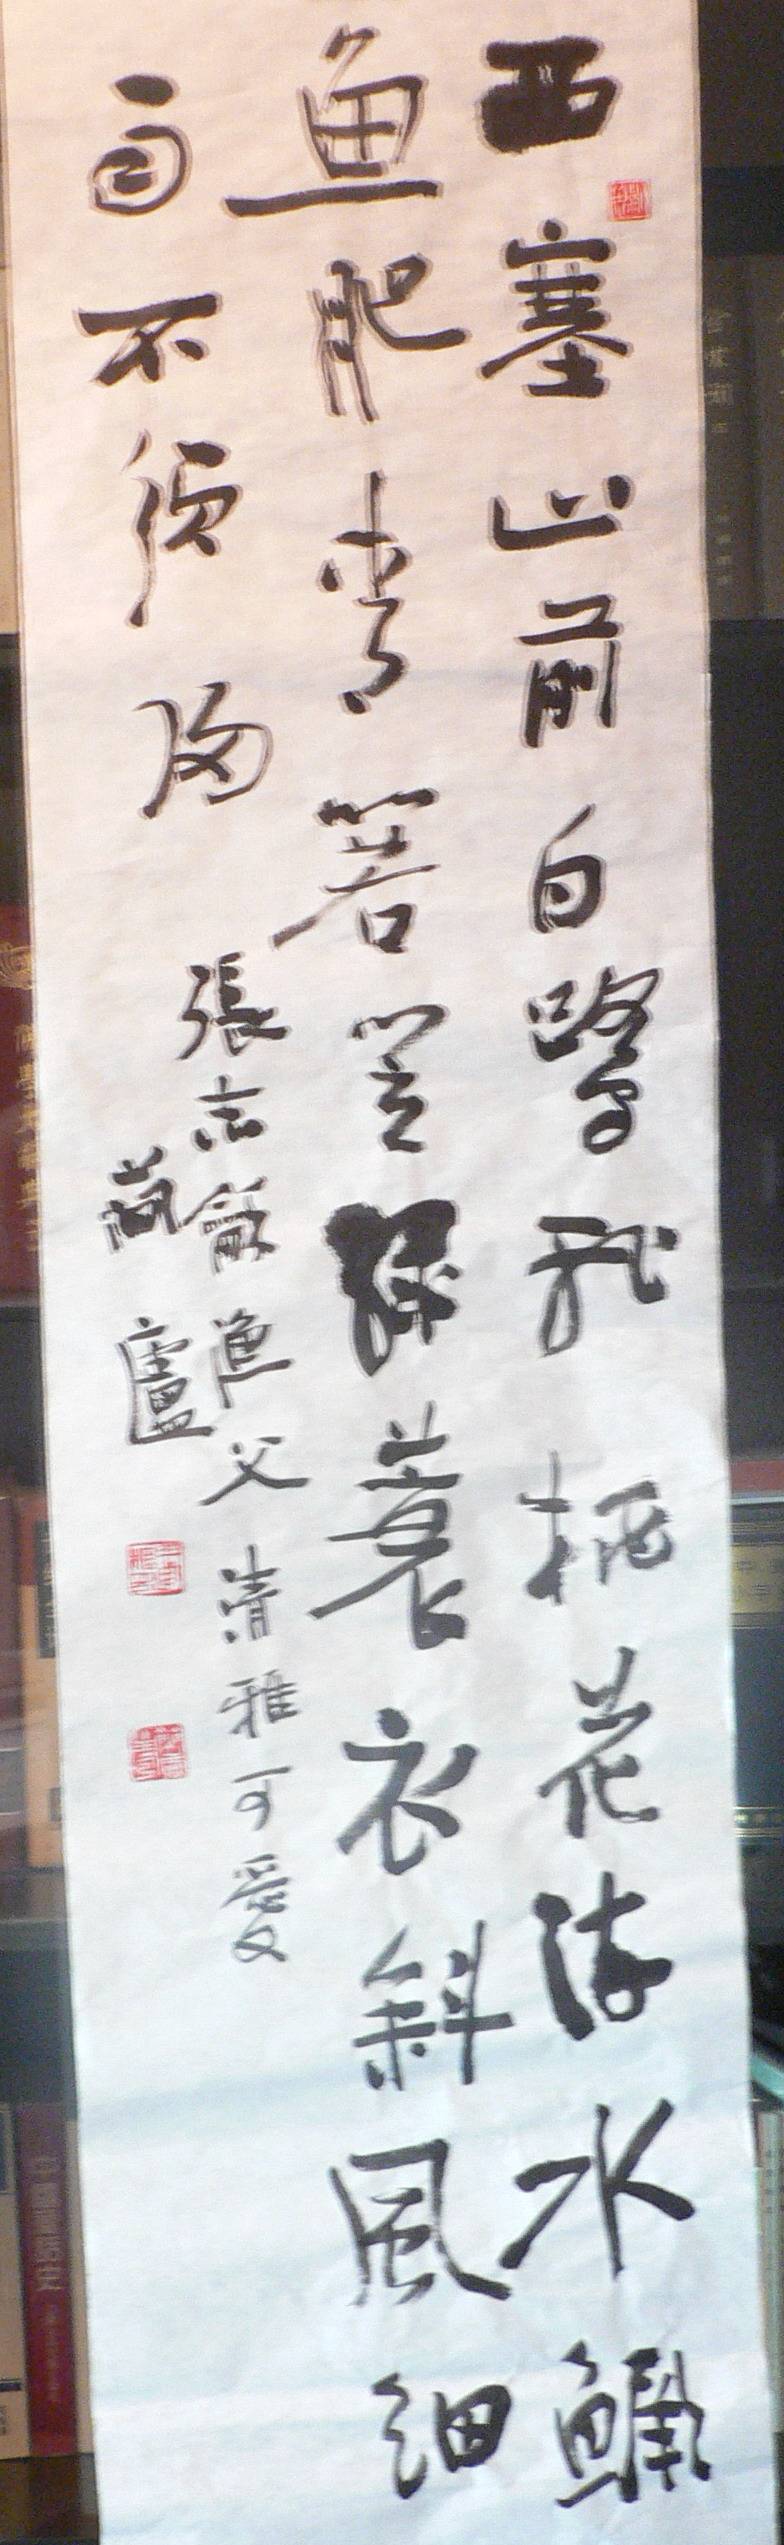 西塞山前白鹭飛桃花流水鳜
鱼肥青箬笠綠蓑衣斜風細
雨不須歸
張志龢漁父清雅可愛
蘭廬